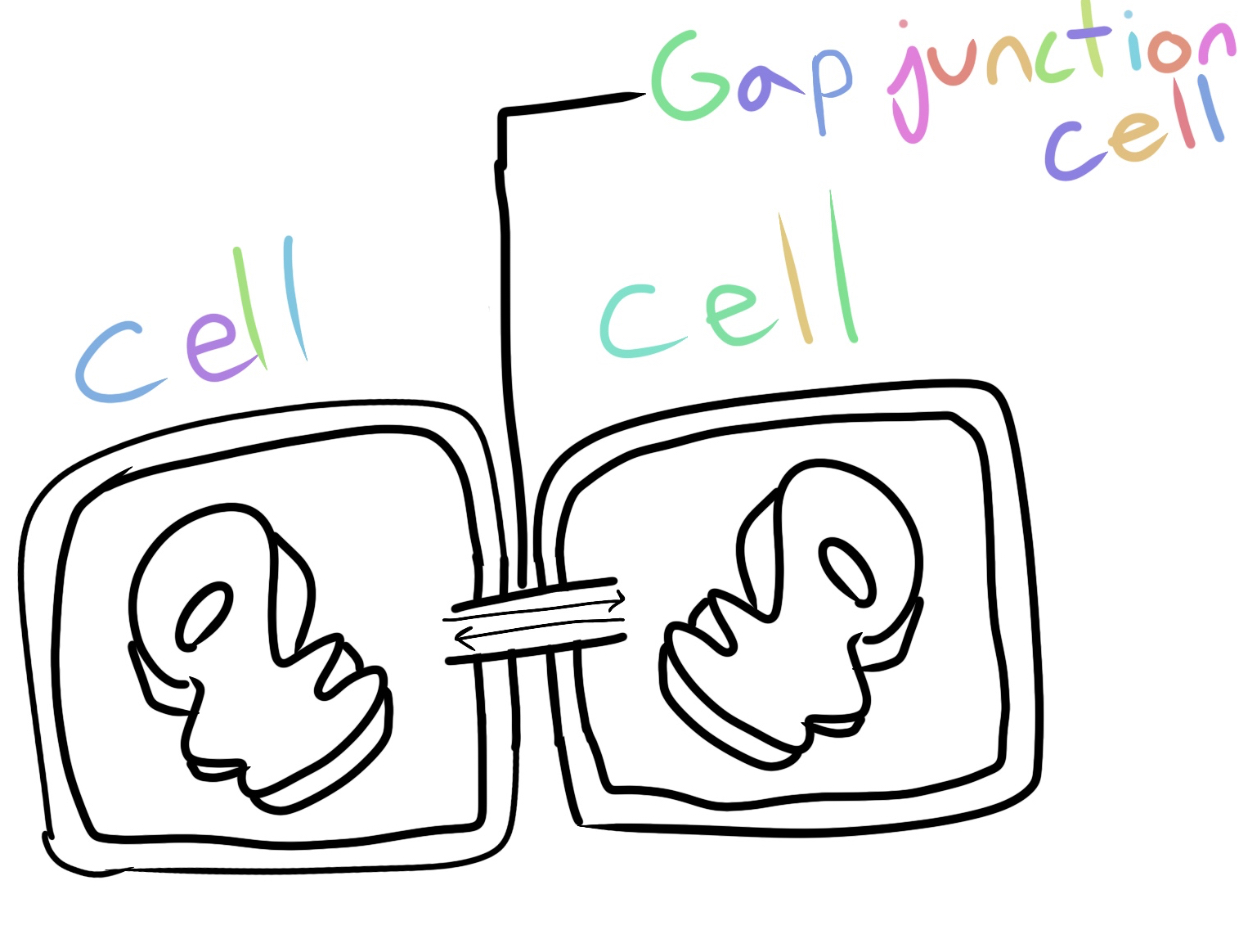 Gap junction
cell
cell
cell